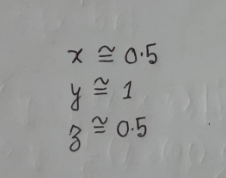 x ≅ 0.5
y ≅ 1
z ≅ 0.5